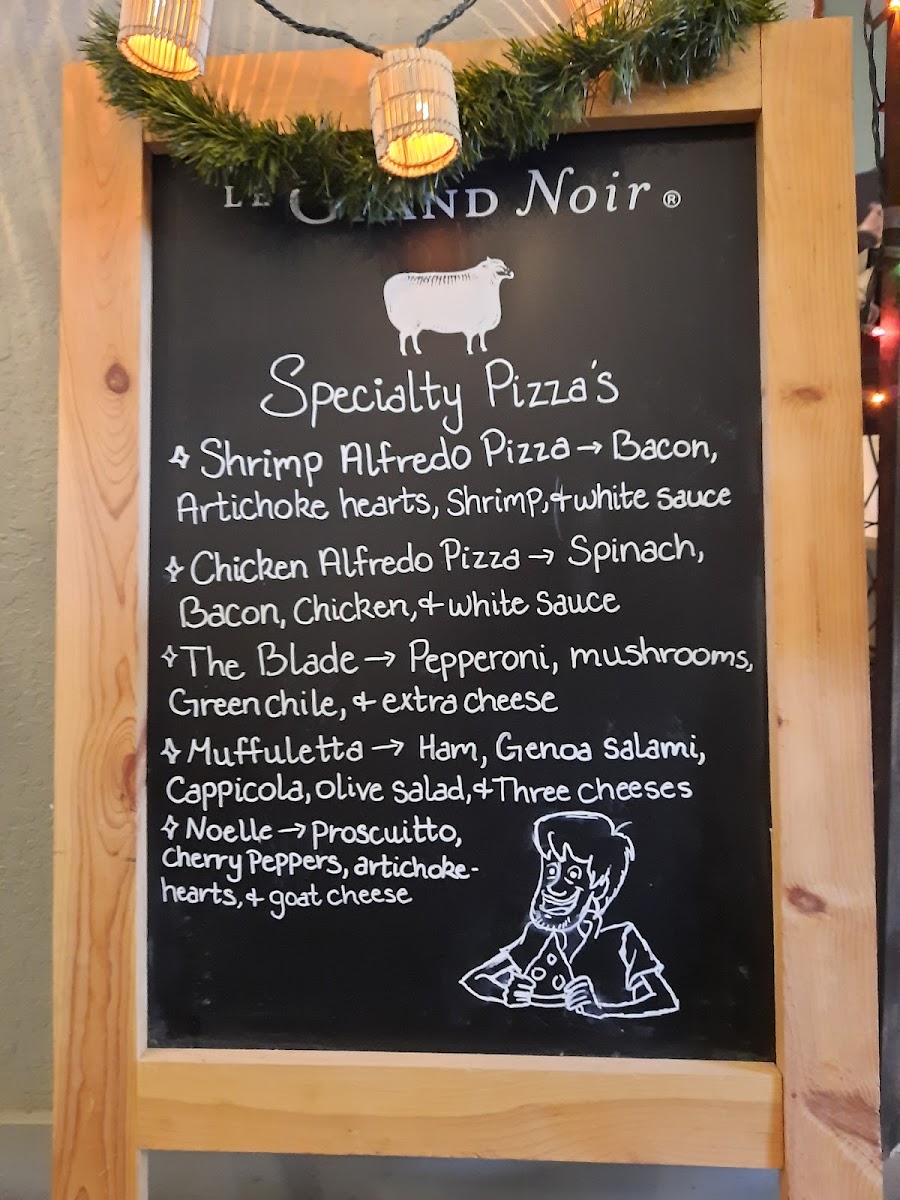 LE GRAND Noir ®
Specialty Pizza's
✧ Shrimp Alfredo Pizza → Bacon,
Artichoke hearts, Shrimp, & white sauce
✧ Chicken Alfredo Pizza → Spinach,
Bacon, Chicken, & white Sauce
✧ The Blade → Pepperoni, mushrooms,
Green chile, & extra cheese
✧ Muffuletta → Ham, Genoa Salami,
Cappicola, olive salad, & Three cheeses
✧ Noelle → Proscuitto,
Cherry Peppers, artichoke-
hearts, & goat cheese